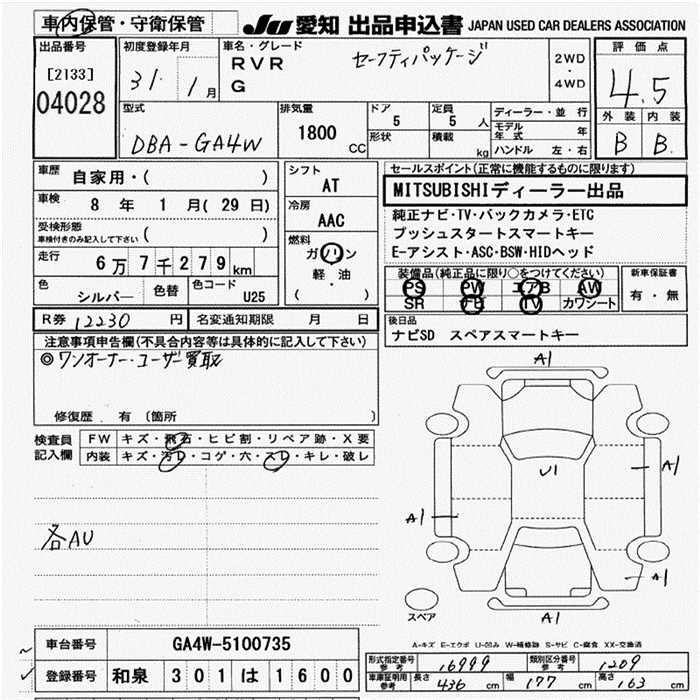 車内保管・守衛保管
JU 愛知 出品申込書 JAPAN USED CAR DEALERS ASSOCIATION
出品番号
[2133]
04028
初度登録年月
31. 1月
車名・グレード
RVR セーフティパッケージ
G
2WD
・
4WD
評価点
4.5
外装 内装
B B
型式
DBA-GA4W
排気量
1800 CC
ドア
5
形状
定員
5人
積載
kg
ディーラー・並行
モデル年式 年
ハンドル 左・右
車歴
自家用・( )
車検
8 年 1 月( 29 日)
受検形態
車検付きのみ記入して下さい ( )
走行
6万7千279km
色
シルバー
色替
色コード
U25
シフト
AT
冷房
AAC
燃料
ガソリン
軽・油
( )
セールスポイント(正常に機能するものに限ります)
MITSUBISHIディーラー出品
純正ナビ・TV・バックカメラ・ETC
プッシュスタートスマートキー
E-アシスト・ASC・BSW・HIDヘッド
装備品(純正品に限り○をつけてください)
PS PW エアB AW
SR ナビ TV カワシート
新車保証書
有・無
R券 12230 円 名変通知期限 月 日
後日品
ナビSD スペアスマートキー
注意事項申告欄(不具合内容等は具体的に記入して下さい)
◎ワンオーナー・ユーザー買取
修復歴 有 〔箇所 〕
検査員記入欄
FW キズ・飛石・ヒビ割・リペア跡・X要
内装 キズ・汚レ・コゲ・穴・スレ・キレ・破レ
各AU
A1
U1
A1
A1
A1
A1
スペア
A-キズ E-エクボ U-凹み W-補修跡 S-サビ C-腐食 XX-交換済
車台番号 GA4W-5100735
登録番号 和泉 301 は 1600
形式指定番号 参考 16999 類別区分番号 参考 1209
車庫証明用 参考 長さ 436 cm 幅 177 cm 高さ 163 cm